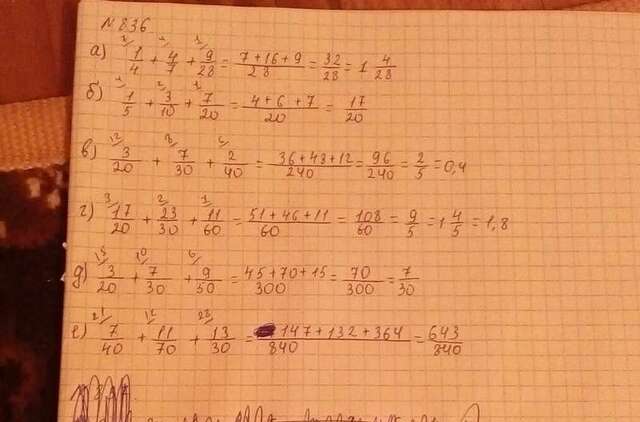 №836
а) 1/4 + 4/7 + 9/28 = (7+16+9)/28 = 32/28 = 1 4/28
б) 1/5 + 3/10 + 7/20 = (4+6+7)/20 = 17/20
в) 3/20 + 7/30 + 2/40 = (36+48+12)/240 = 96/240 = 2/5 = 0,4
г) 17/20 + 23/30 + 11/60 = (51+46+11)/60 = 108/60 = 9/5 = 1 4/5 = 1,8
д) 3/20 + 7/30 + 9/50 = (45+70+15)/300 = 70/300 = 7/30
е) 7/40 + 11/70 + 13/30 = (147+132+364)/840 = 643/840